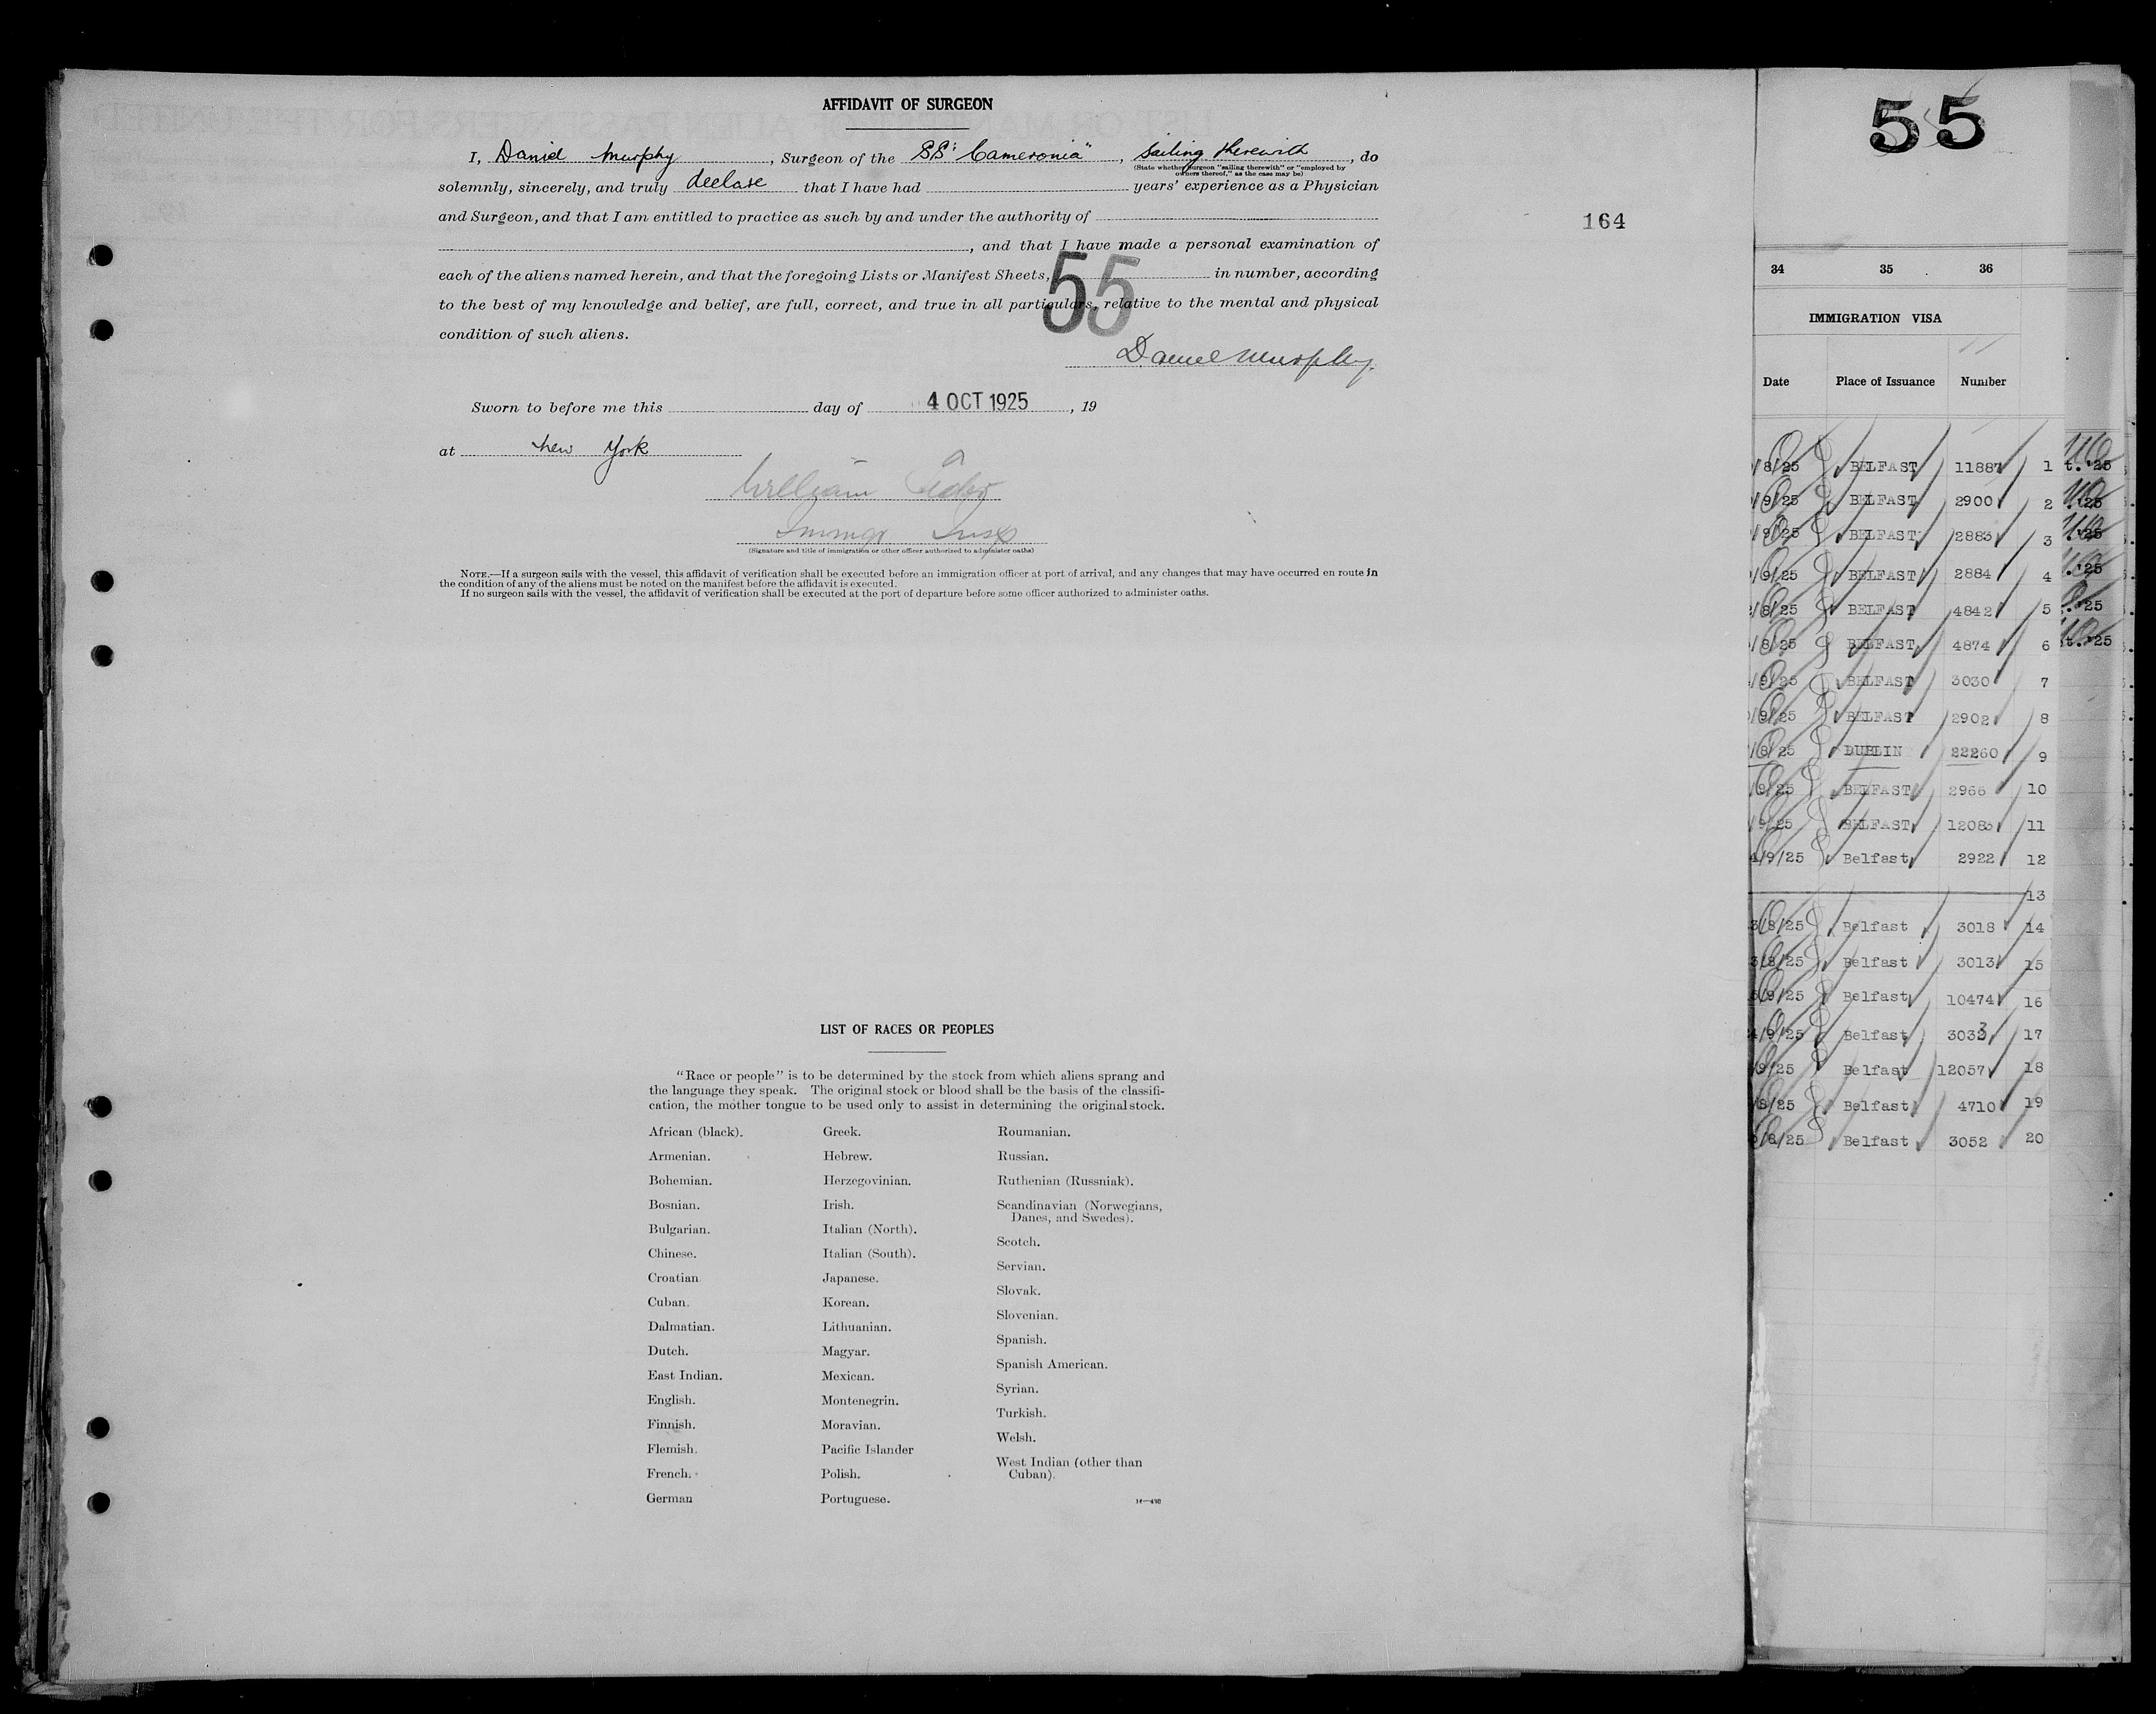 AFFIDAVIT OF SURGEON
I, Daniel Murphy, Surgeon of the SS "Cameronia", sailing therewith, do
(State whether surgeon "sailing therewith" or "employed by
owners thereof," as the case may be)
solemnly, sincerely, and truly declare that I have had years' experience as a Physician
and Surgeon, and that I am entitled to practice as such by and under the authority of
, and that I have made a personal examination of
each of the aliens named herein, and that the foregoing Lists or Manifest Sheets, in number, according
to the best of my knowledge and belief, are full, correct, and true in all particulars, relative to the mental and physical
condition of such aliens.
55
Daniel Murphy.
Sworn to before me this day of 4 OCT 1925, 19
at New York
William
Immgr Insp
(Signature and title of immigration or other officer authorized to administer oaths)
NOTE.—If a surgeon sails with the vessel, this affidavit of verification shall be executed before an immigration officer at port of arrival, and any changes that may have occurred en route in
the condition of any of the aliens must be noted on the manifest before the affidavit is executed.
If no surgeon sails with the vessel, the affidavit of verification shall be executed at the port of departure before some officer authorized to administer oaths.
164
LIST OF RACES OR PEOPLES
"Race or people" is to be determined by the stock from which aliens sprang and
the language they speak. The original stock or blood shall be the basis of the classifi-
cation, the mother tongue to be used only to assist in determining the original stock.
African (black).
Armenian.
Bohemian.
Bosnian.
Bulgarian.
Chinese.
Croatian.
Cuban.
Dalmatian.
Dutch.
East Indian.
English.
Finnish.
Flemish.
French.
German
Greek.
Hebrew.
Herzegovinian.
Irish.
Italian (North).
Italian (South).
Japanese.
Korean.
Lithuanian.
Magyar.
Mexican.
Montenegrin.
Moravian.
Pacific Islander
Polish.
Portuguese.
Roumanian.
Russian.
Ruthenian (Russniak).
Scandinavian (Norwegians,
Danes, and Swedes).
Scotch.
Servian.
Slovak.
Slovenian.
Spanish.
Spanish American.
Syrian.
Turkish.
Welsh.
West Indian (other than
Cuban).
55
34 35 36
IMMIGRATION VISA
Date Place of Issuance Number
/8/25 BELFAST 11887 1 t.'25
/9/25 BELFAST 2900 2 .'25
/9/25 BELFAST 2883 3 '25
/9/25 BELFAST 2884 4 .'25
/8/25 BELFAST 4842 5 .'25
/8/25 BELFAST 4874 6 t.'25
/9/25 BELFAST 3030 7
/9/25 BELFAST 2902 8
/8/25 DUBLIN 22260 9
/9/25 BELFAST 2966 10
/9/25 BELFAST 12083 11
/9/25 Belfast 2922 12
13
3/8/25 Belfast 3018 14
3/8/25 Belfast 3013 15
/9/25 Belfast 10474 16
/9/25 Belfast 3033 17
/9/25 Belfast 12057 18
/8/25 Belfast 4710 19
/8/25 Belfast 3052 20